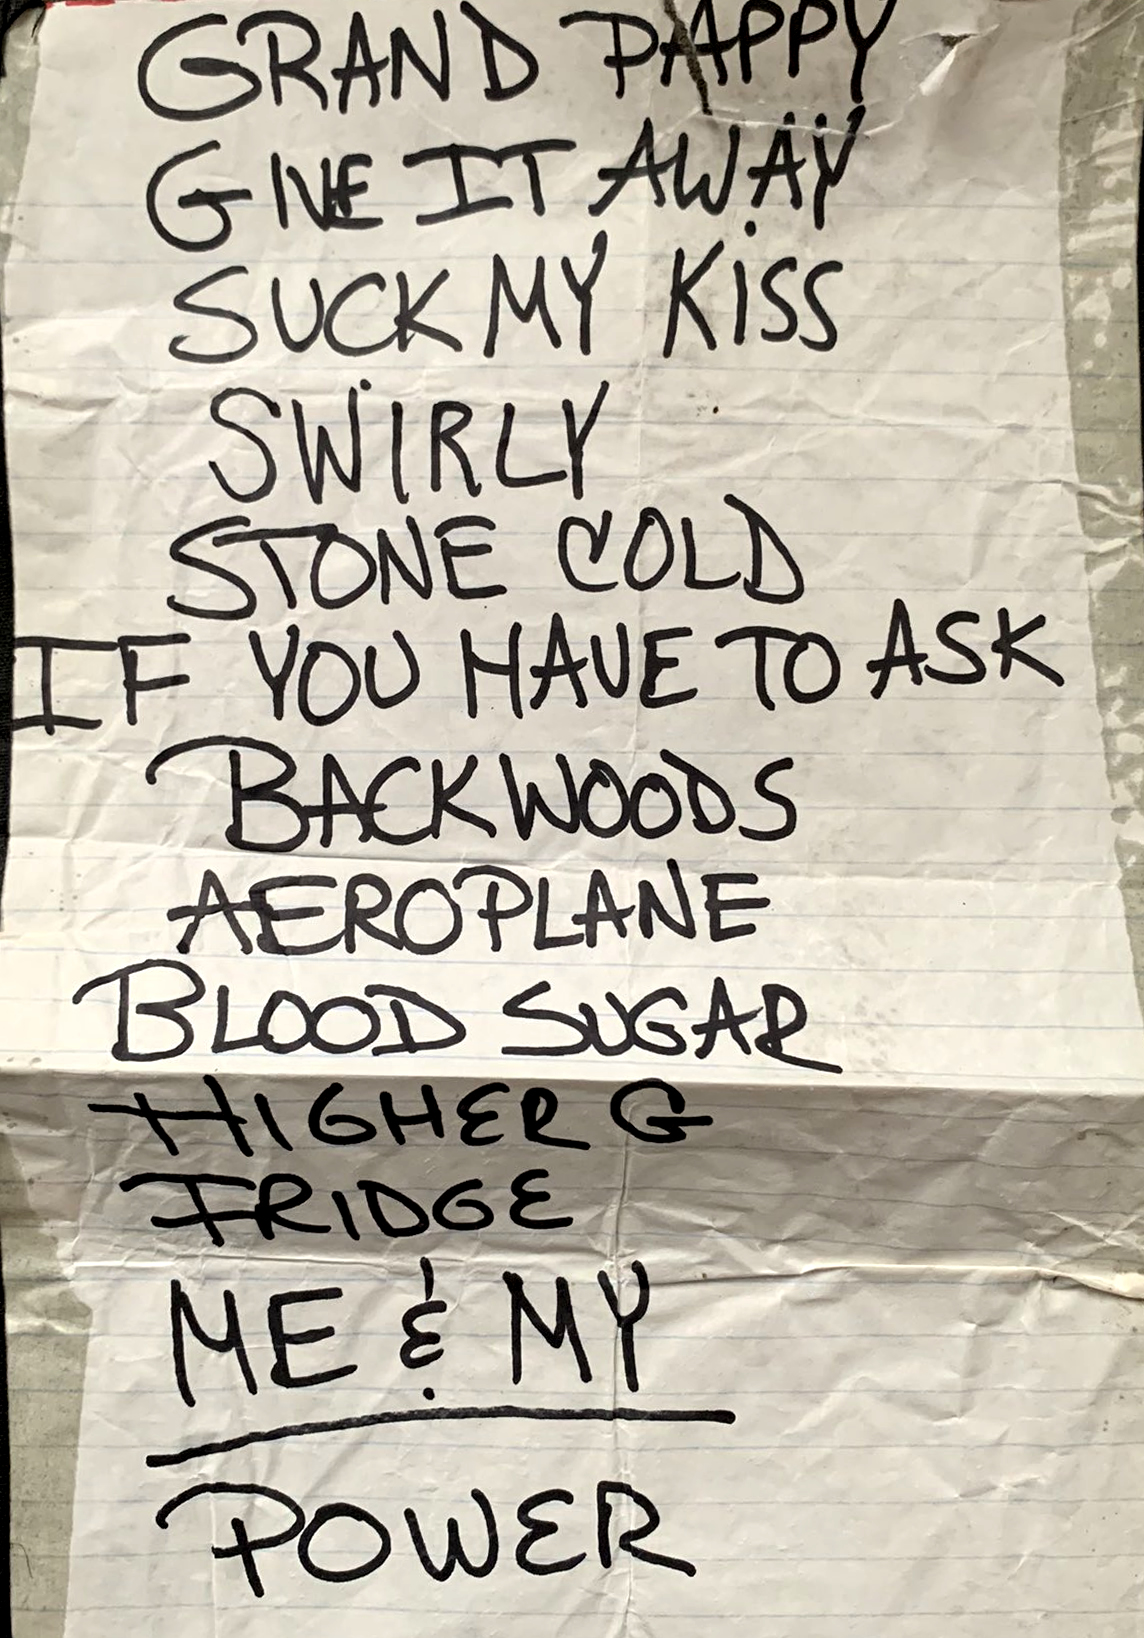 GRAND PAPPY
GIVE IT AWAY
SUCK MY KISS
SWIRLY
STONE COLD
IF YOU HAVE TO ASK
BACKWOODS
AEROPLANE
BLOOD SUGAR
HIGHER G
FRIDGE
ME & MY
POWER